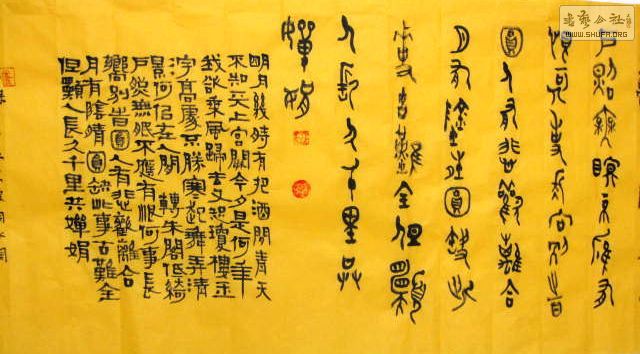 书艺公社
WWW.SHUFA.ORG
戶照無眠不應有
恨何事長向別旹
圓人有悲歡離合
月有陰晴圓缺此
事古難全但願
人長久千里共
嬋娟
明月幾時有把酒問青天
不知天上宮闕今夕是何年
我欲乘風歸去又恐瓊樓玉
宇高處不勝寒起舞弄清
影何似在人間 轉朱閣低綺
戶照無眠不應有恨何事長
嚮別旹圓人有悲歡離合
月有陰晴圓缺此事古難全
但願人長久千里共嬋娟